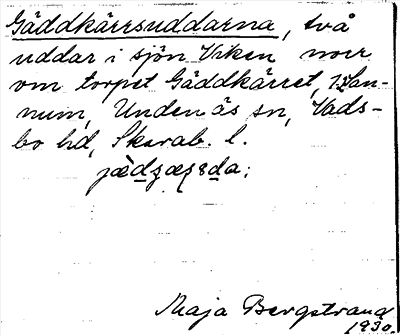 Gäddkärrsuddarna, två
uddar i sjön Viken norr
om torpet Gäddkärret, 
num, Undenäs sn, Vads-
bo hd, Skarab. l.
Maja Bergstrand
1930.